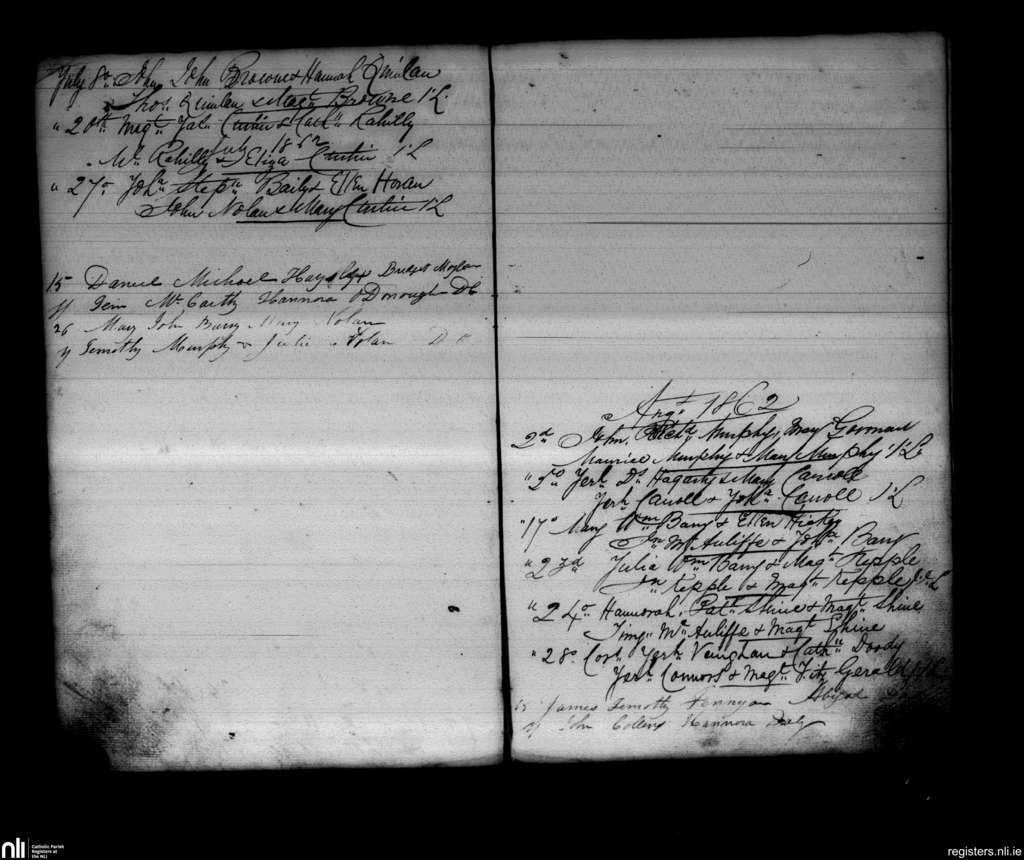 July 8o John John Browne & Hannah Quinlan
Thos. Quinlan & Magt Browne 1'L.
" 20th Magt Jas. Curtin & Cath. Rahilly
July 1862
Mr. Rahilly & Eliza Curtin 1'L
" 27o Joha Stepn Baily & Ellen Horan
John Nolan & Mary Curtin 1'L
15 Daniel Michael Hays Bridget
Mc Carthy Hannora O Donough
26 Mary John Barry Mary Nolan
Timothy Murphy & Julia Nolan
Augt 1862
2d John. Richd Murphy, Mary Gorman
Maurice Murphy & Mary Murphy 1'L.
" 5o Jerh Ds Hagarty & Mary Carroll
Jerh Carroll & Joha Carroll 1'L
" 17o Mary Wm Barry & Ellen Hickey
Jn McAuliffe & Joha Barry
" 23d Julia Wm Barry & Magt Kepple
Jn Kepple & Magt Kepple
" 24o Hannorah. Patk Shine & Magt Shine
Timy. McAuliffe & Magt Shine
" 28o Cors Jerh Vaughan & Cathn Doody
Jerh Connors & Magt Fitz Gerald
James Timothy Abigal
John Collins Hannora Daly
nli
Catholic Parish
Registers at
the NLI
registers.nli.ie